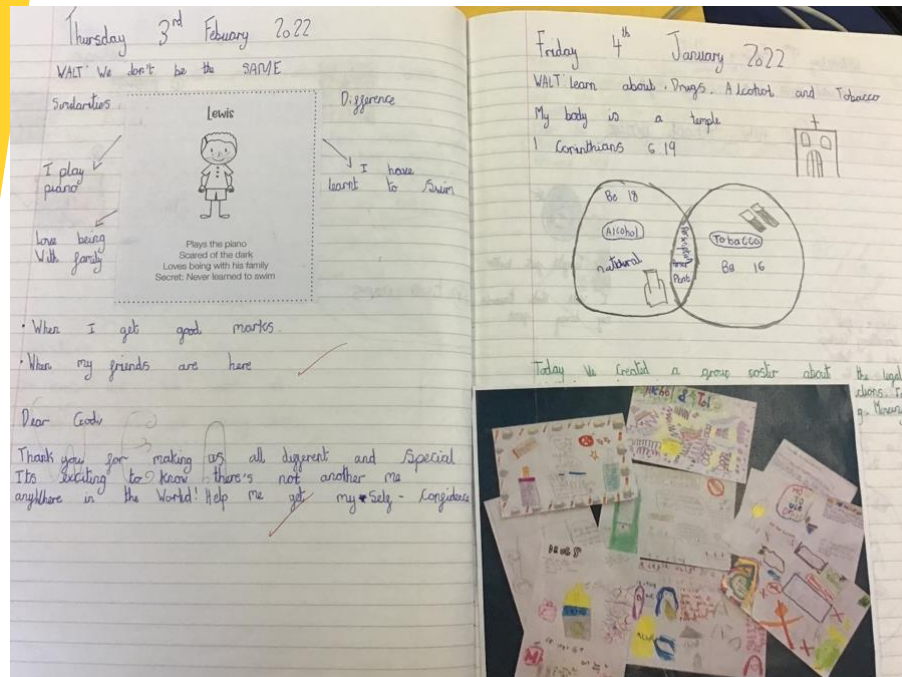 Thursday 3rd Febuary 2022
WALT: We don't be the SAME
Similarities
Difference
Lewis
I play
piano
I have
learnt to swim
Love being
With family
Plays the piano
Scared of the dark
Loves being with his family
Secret: Never learned to swim
• When I get good marks.
• When my friends are here
Dear God,
Thank you for making us all different and Special
Its exciting to know there's not another me
anywhere in the World! Help me get my Self-Confidence
Friday 4th January 2022
WALT: learn about Drugs, Alcohol and Tobacco
My body is a temple
1 Corinthians 6 19
Be 18
Alcohol
natural
Tobacco
Be 16
Today We Created a group poster about the legal